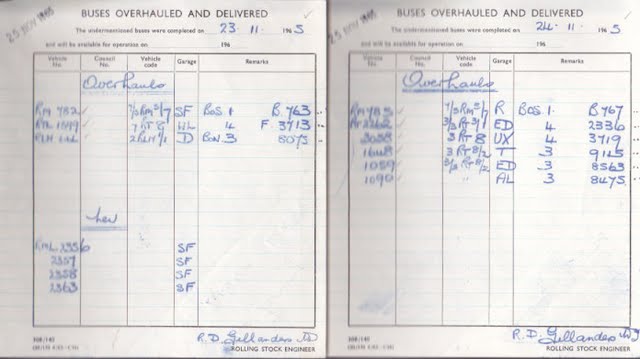 25 NOV 1965
BUSES OVERHAULED AND DELIVERED
The undermentioned buses were completed on 23 · 11 · 1965
and will be available for operation on 196
Vehicle No. Council No. Vehicle code Garage Remarks
Overhauls
RM 782 SF Box 1 B 763
1099 4 F 3713
D Box 3 8075
new
RML 2356 SF
2357 SF
2358 SF
2363 SF
R.D. Gillanders
ROLLING STOCK ENGINEER
25 NOV 1965
BUSES OVERHAULED AND DELIVERED
The undermentioned buses were completed on 24 · 11 · 1965
and will be available for operation on 196
Vehicle No. Council No. Vehicle code Garage Remarks
Overhauls
RM 785 R Box 1 B 767
RT 2262 ED 4 2336
RT 8 UX 4 3719
1648 T 3 9145
1059 ED 3 8563
1090 AL 3 8475
R.D. Gillanders
ROLLING STOCK ENGINEER